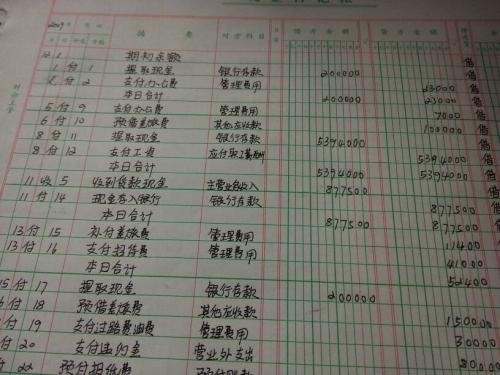 2009年 凭证 摘要 对方科目 借方金额 贷方金额
月 日 种类 号数
12 1 期初余额 借
1 付 1 提取现金 银行存款 200000 借
2 付 2 支付办公费 管理费用 23000 借
本日合计 200000 23000 借
5 付 9 支付办公费 管理费用 7000 借
6 付 10 预借差旅费 其他应收款 100000 借
8 付 11 提取现金 银行存款 5394000 借
8 付 12 支付工资 应付职工薪酬 5394000 借
本日合计 5394000 5394000 借
11 收 5 收到货款现金 主营业务收入 877500 借
11 付 14 现金存入银行 银行存款 877500
本日合计 877500 877500
13 付 15 补付差旅费 管理费用 11400
13 付 16 支付招待费 管理费用 41000
本日合计 52400
15 付 17 提取现金 银行存款 200000
付 18 预借差旅费 其他应收款 150000
付 19 支付过路费油费 管理费用 30000
付 20 支付违约金 营业外支出
付 22